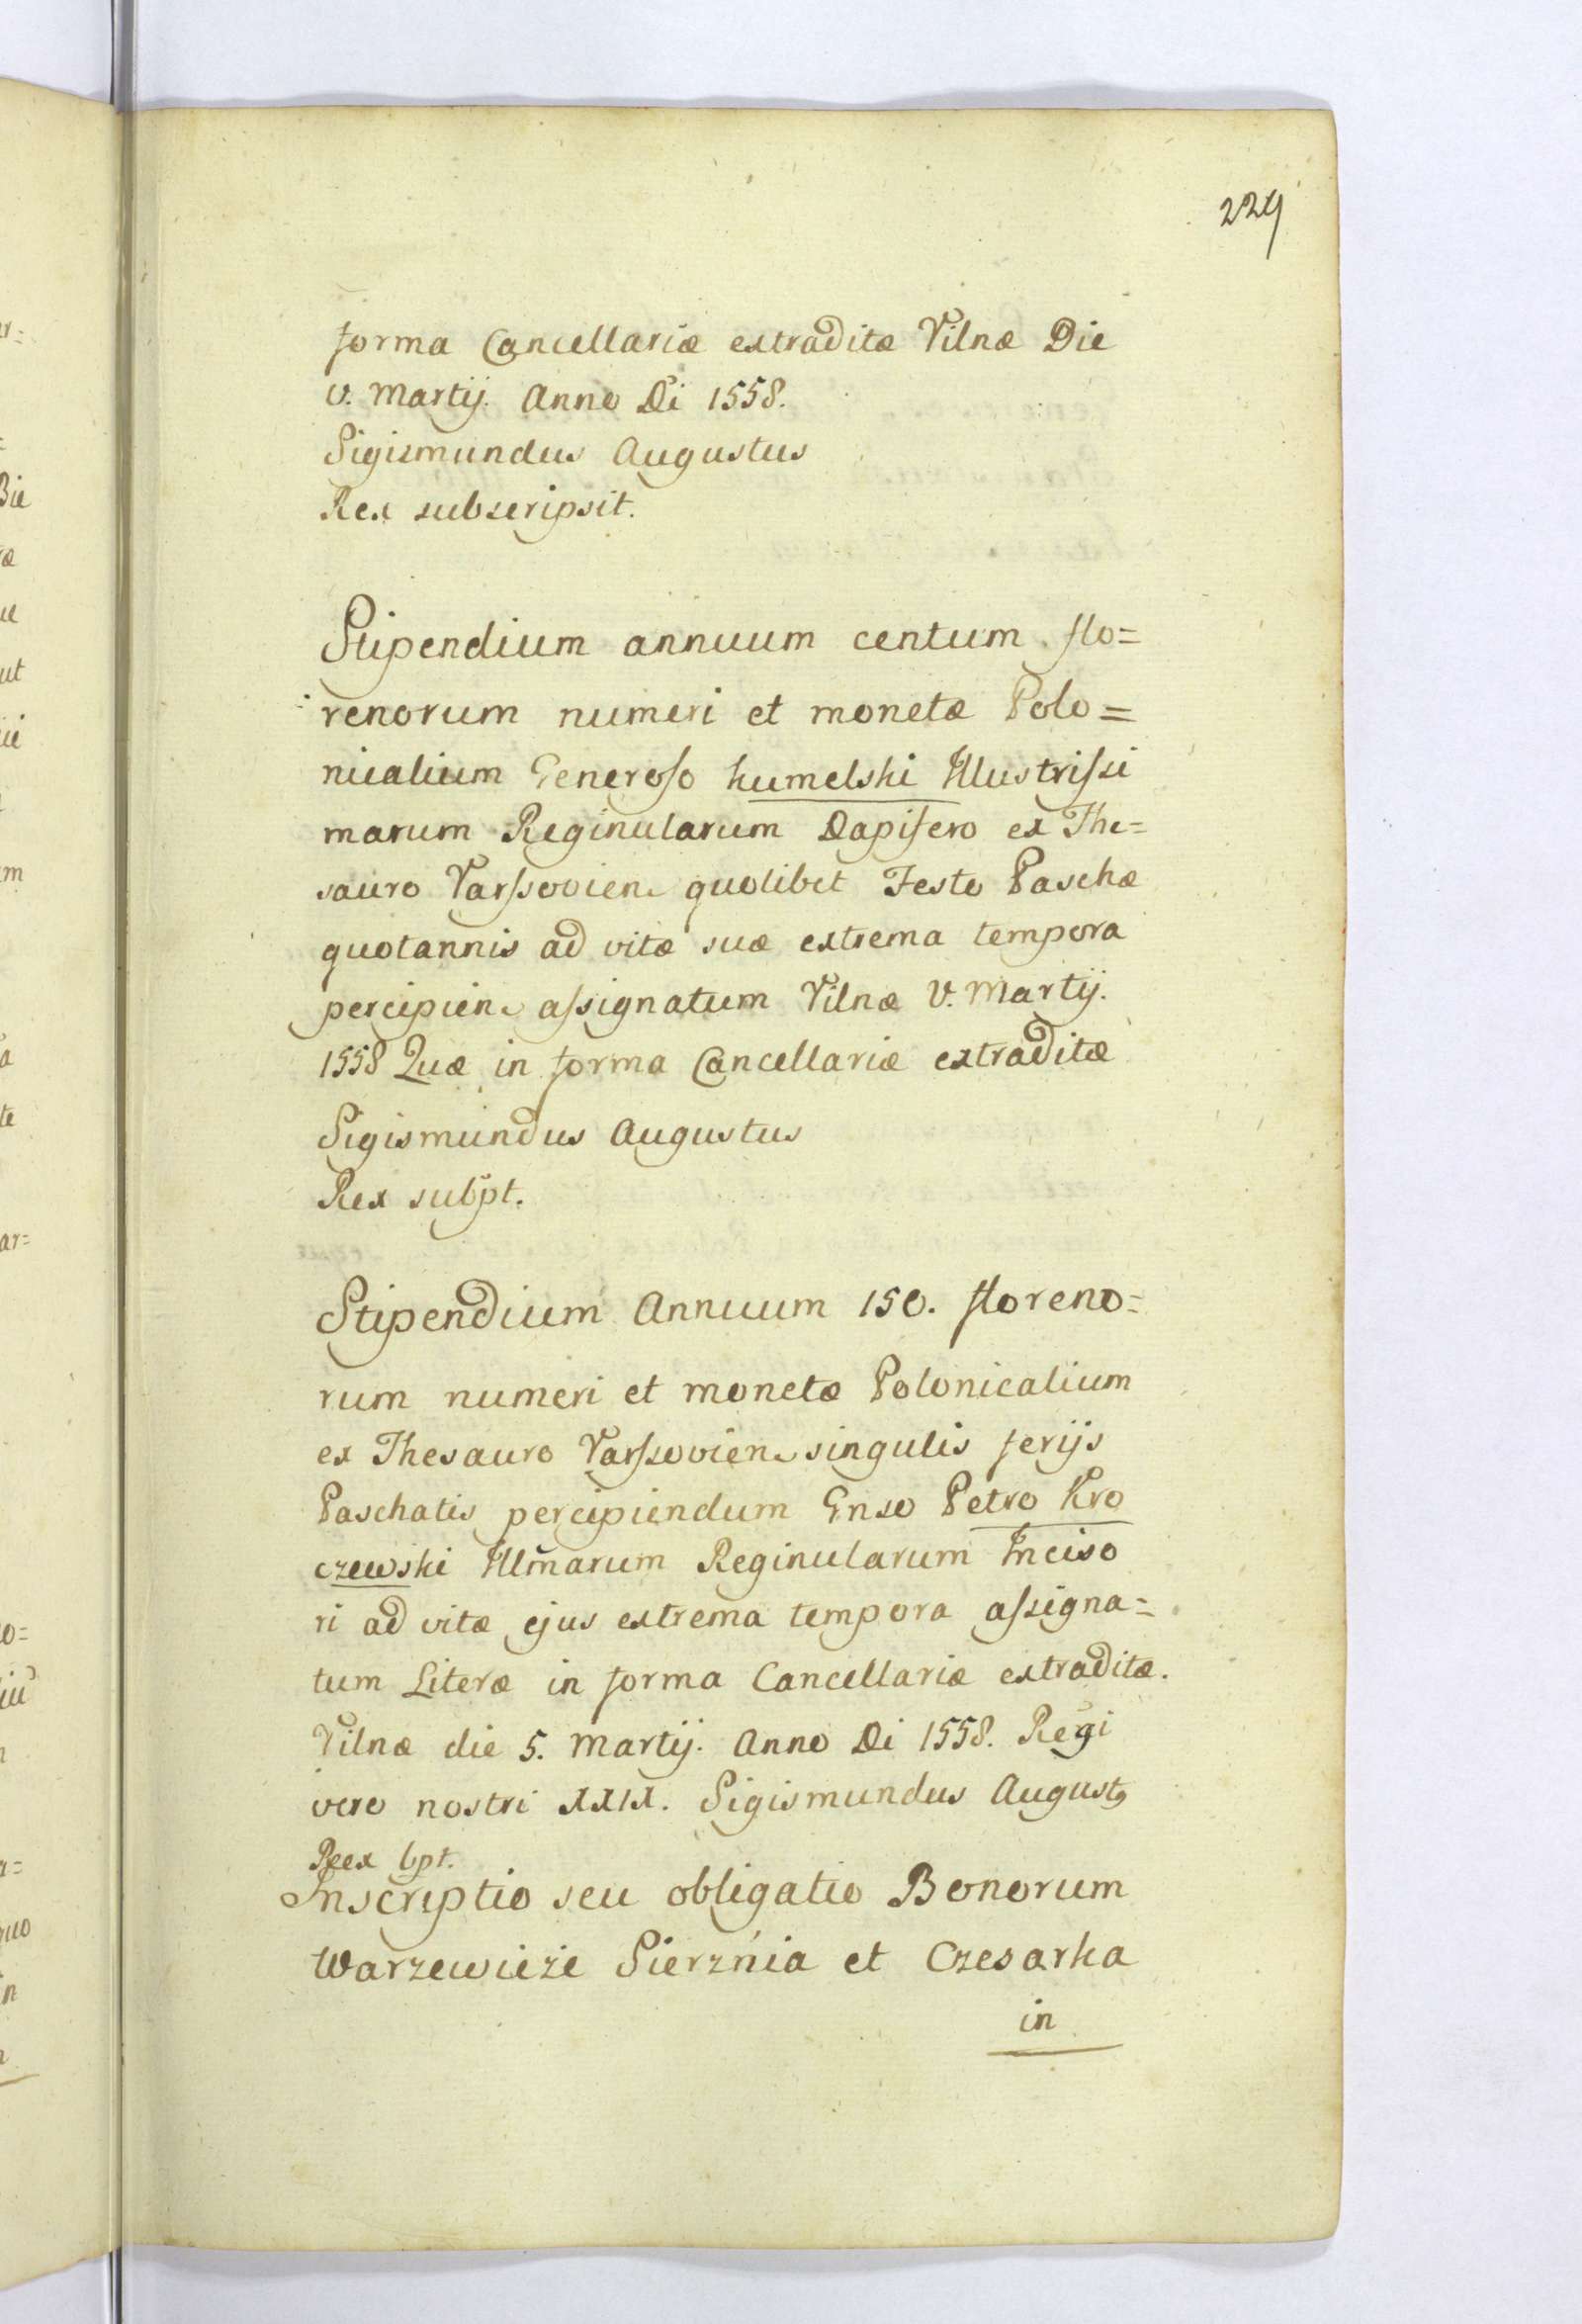 229
forma Cancellariæ extraditæ Vilnæ Die
V. Martij. Anno Di 1558.
Sigismundus Augustus
Rex subscripsit.
Stipendium annuum centum flo=
renorum numeri et monetæ Polo=
nicalium Generoso humelski Illustrissi
marum Reginularum Dapifero ex The=
sauro Varssovien quolibet Festo Paschæ
quotannis ad vitæ suæ extrema tempora
percipien assignatum Vilnæ V. Martij.
1558 Quæ in forma Cancellariæ extraditæ
Sigismundus Augustus
Rex subpt.
Stipendium Annuum 150. floreno=
rum numeri et monetæ Polonicalium
ex Thesauro Varssovien singulis ferijs
Paschatis percipiendum Gnso Petro Kro
czewski Illmarum Reginularum Inciso
ri ad vitæ ejus extrema tempora assigna=
tum Literæ in forma Cancellariæ extraditæ.
Vilnæ die 5. Martij. Anno Di 1558. Regi
vero nostri XXIX. Sigismundus August9
Reex bpt.
Inscriptio seu obligatio Bonorum
Warzewieże Sierznia et Czesarka
in